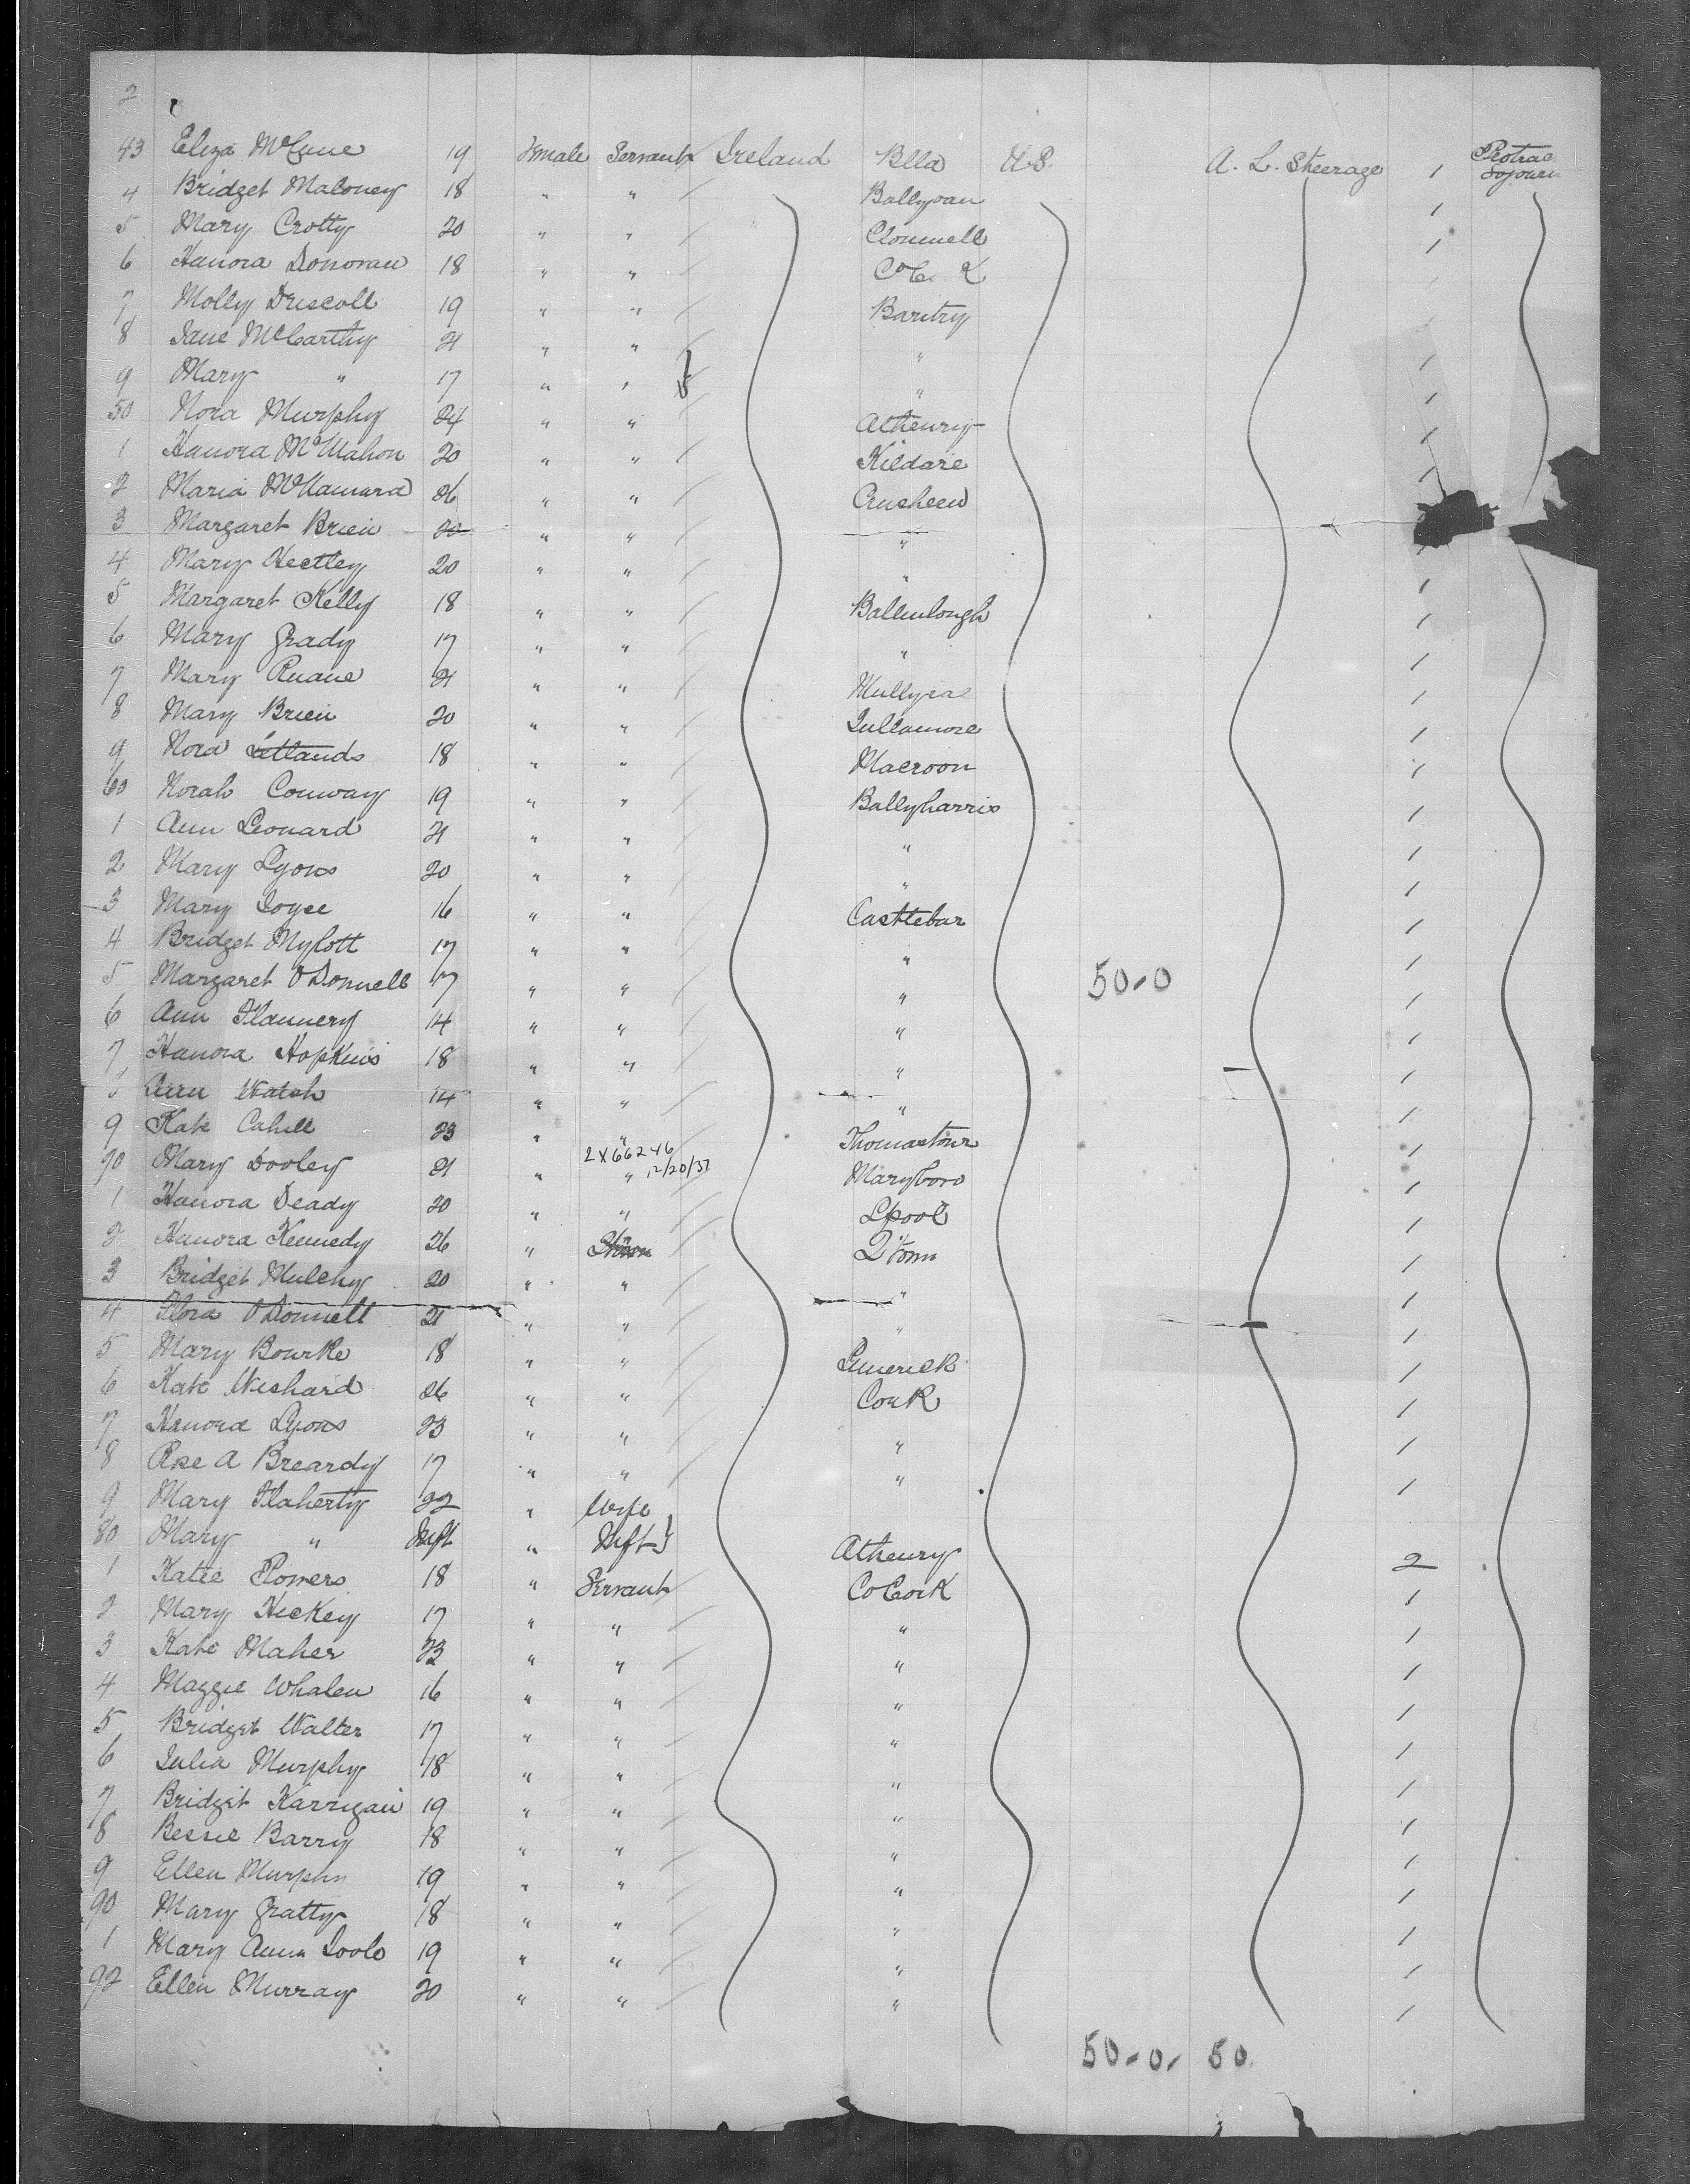 2
43 Eliza McCune 19 Female Servant Ireland Bella U.S. A. L. Steerage 1 Protrac Sojourn
4 Bridget Maloney 18 " " Ballyvan 1
5 Mary Crotty 20 " " Clonmell 1
6 Hanora Donovan 18 " "
7 Molly Driscoll 19 " " Bantry
8 Jane McCarthy 21 " " " 1
9 Mary " 17 " " " 1
50 Nora Murphy 24 " " Athenry 1
1 Hanora McMahon 20 " " Kildare 1
2 Maria McNamara 26 " " Crusheen
3 Margaret Brien 20 " " "
4 Mary Hectley 20 " " " 1
5 Margaret Kelly 18 " " Ballinlough 1
6 Mary Grady 17 " " " 1
7 Mary Ruane 21 " " 1
8 Mary Brien 20 " " Tullamore 1
9 Nora 18 " " Macroon 1
60 Norah Conway 19 " " Ballyharris 1
1 Ann Leonard 21 " " " 1
2 Mary Lyons 20 " " " 1
3 Mary Joyce 16 " " Casttebar 1
4 Bridget Mylott 17 " " " 1
5 Margaret O'Donnell 17 " " " 50-0 1
6 Ann Flannery 14 " " " 1
7 Hanora Hopkins 18 " " " 1
Ann Walsh 14 " " " 1
9 Kate Cahill 23 " " Thomastown 1
2X66246
70 Mary Dooley 21 " " 12/20/37 Maryboro 1
1 Hanora Deady 20 " " Lpool 1
2 Hanora Kennedy 26 " " Q'Town 1
3 Bridget Mulchy 20 " " " 1
4 Nora O'Donnell 21 " " " 1
5 Mary Bourke 18 " " Limerick 1
6 Kate Wishard 26 " " Cork 1
7 Hanora Lyons 23 " " " 1
8 Rose A Breardy 17 " " " 1
9 Mary Flaherty 22 " Wife
80 Mary " Inft " Inft } Athenry 2
1 Katie Powers 18 " Servant Co Cork 1
2 Mary Hickey 17 " " " 1
3 Kate Maher 23 " " " 1
4 Maggie Whalen 16 " " " 1
5 Bridget Walter 17 " " " 1
6 Julia Murphy 18 " " " 1
7 Bridget Karrigan 19 " " " 1
8 Bessie Barry 18 " " " 1
9 Ellen Murphy 19 " " " 1
90 Mary Gratty 18 " " " 1
1 Mary Ann 19 " " " 1
92 Ellen Murray 20 " " " 1
50-0- 50